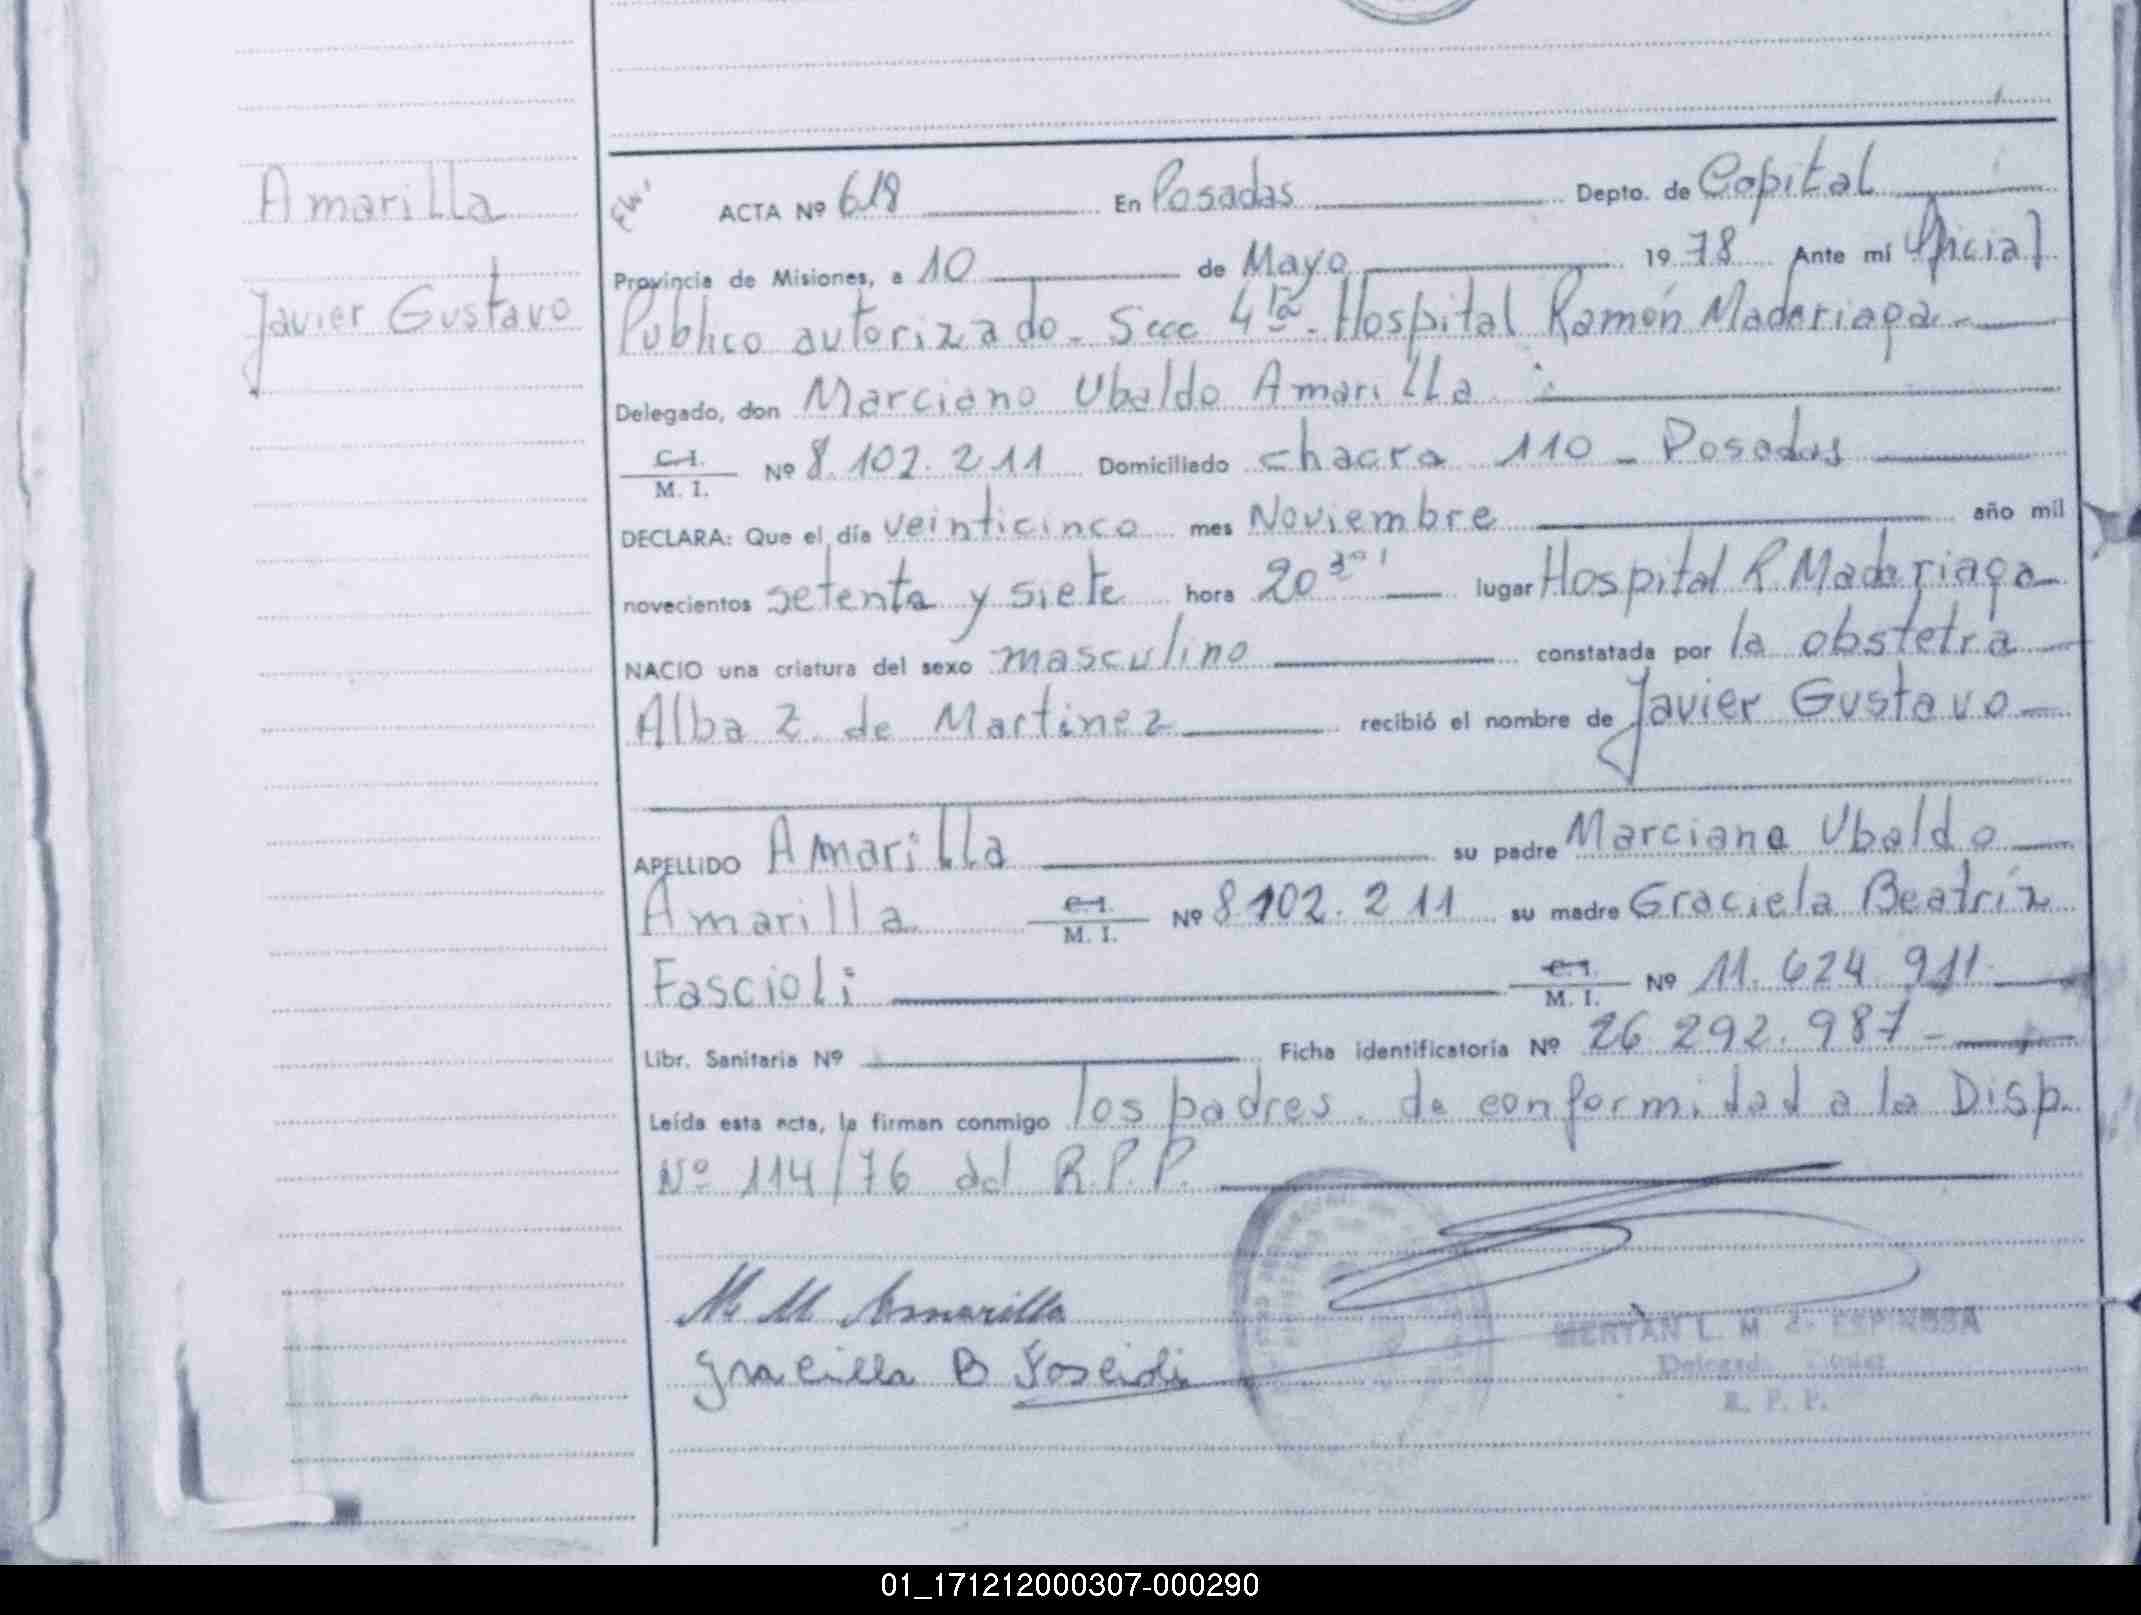 Amarilla
Javier Gustavo
ACTA Nº 618 En Posadas Depto. de Capital
Provincia de Misiones, a 10 de Mayo 1978 Ante mí Oficial
Publico autorizado - Secc 4ta - Hospital Ramón Madariaga -
Delegado, don Marciano Ubaldo Amarilla
C.I.
M. I. Nº 8.102.211 Domiciliado chacra 110 - Posadas
DECLARA: Que el día veinticinco mes Noviembre año mil
novecientos setenta y siete hora 20 30' lugar Hospital R. Madariaga
NACIO una criatura del sexo masculino constatada por la obstetra
Alba Z. de Martinez recibió el nombre de Javier Gustavo
APELLIDO Amarilla su padre Marciano Ubaldo
Amarilla C.I. M. I. Nº 8.102.211 su madre Graciela Beatríz
Fascioli C.I. M. I. Nº 11.624.911
Libr. Sanitaria Nº Ficha identificatoria Nº 26.292.987 -
Leída esta acta, la firman conmigo los padres. de conformidad a la Disp.
Nº 114/76 del R.P.P.
Amarilla
B
L. M. ESPINOSA
R. P. P.
01_171212000307-000290